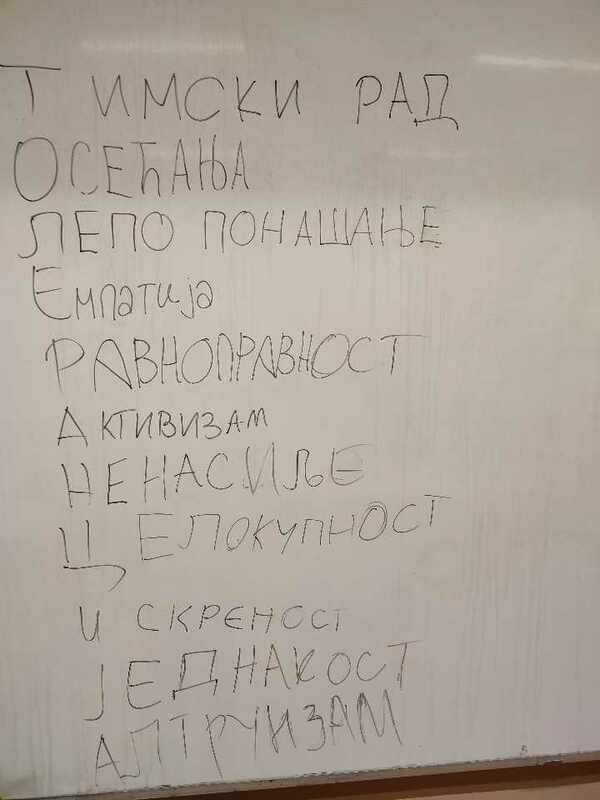 ТИМСКИ РАД
ОСЕЋАЊА
ЛЕПО ПОНАШАЊЕ
Емпатија
РАВНОПРАВНОСТ
АКТИВИЗАМ
НЕНАСИЉЕ
ЦЕЛОКУПНОСТ
ИСКРЕНОСТ
ЈЕДНАКОСТ
АЛТРУИЗАМ